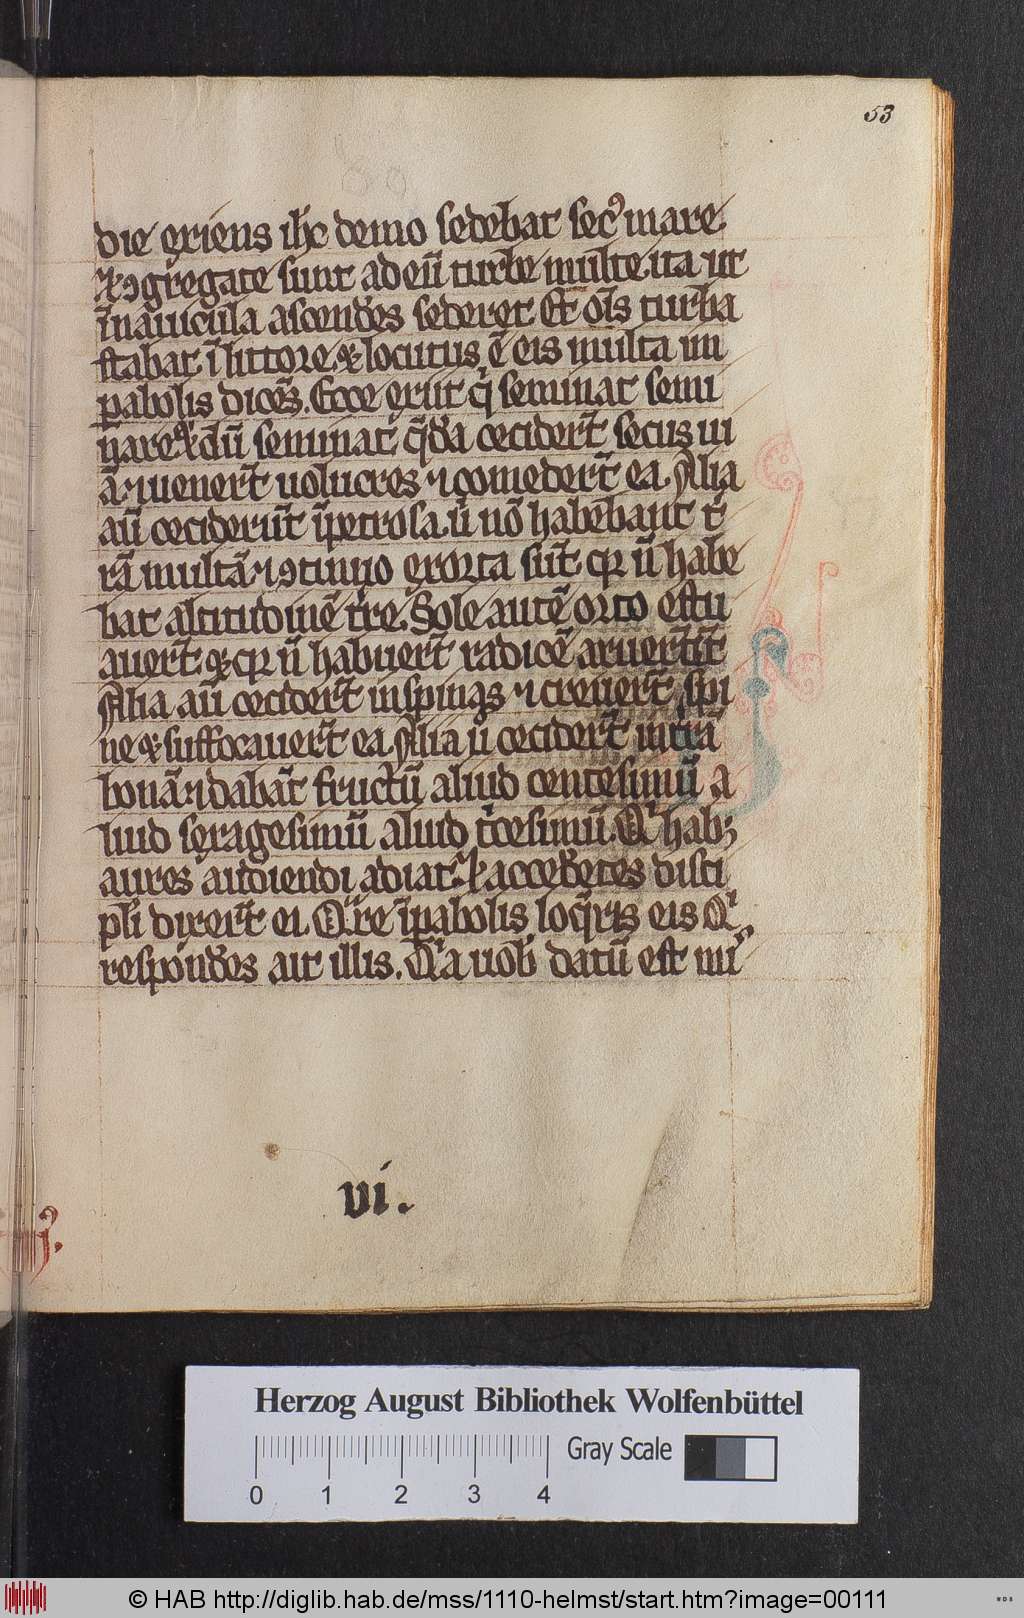 53
die exiens ih̄c demo sedebat sec᷒ mare
⁊ ꝯgregate sunt ad eū turbe multe ita ut
ī nauicula ascendēs sederet Et om̄s turba
stabat ī littore. ⁊ locutus ē eis multa in
pabolis dicēs. Ecce exiit q̄ seminat semi
nare ⁊ dū seminat q̄da cecider̄t secus ui
ā. ⁊ uener̄t uolucres ⁊ comeder̄t ea. Alia
aū ceciderūt ī petrosa. u̇ nō habebant t̄
rā multā. ⁊ ꝯtinuo exorta sūt. qr n̄ habe
bat altitudinē t̄re. Sole autē orto estu
auer̄t. ⁊ qr n̄ habuer̄t radicē aruer̄t
Alia aū cecider̄t in spinas ⁊ creuer̄t spi
ne ⁊ suffocauer̄t ea. Alia u̇ cecider̄t in t̄rā
bonā. ⁊ dabāt fructū aliud centesimū a
liud sexagesimū aliud t̄cesimū. Qͥ habꝫ
aures audiendi audiat. ⁊ accedētes disci
pl̄i dixer̄t ei. Qͣre ī pabolis loq̄ris eis Qͥ
respondēs ait illis. Qͥa uob̄ datū est mi
vi.
Herzog August Bibliothek Wolfenbüttel
Gray Scale
0 1 2 3 4
© HAB http://diglib.hab.de/mss/1110-helmst/start.htm?image=00111